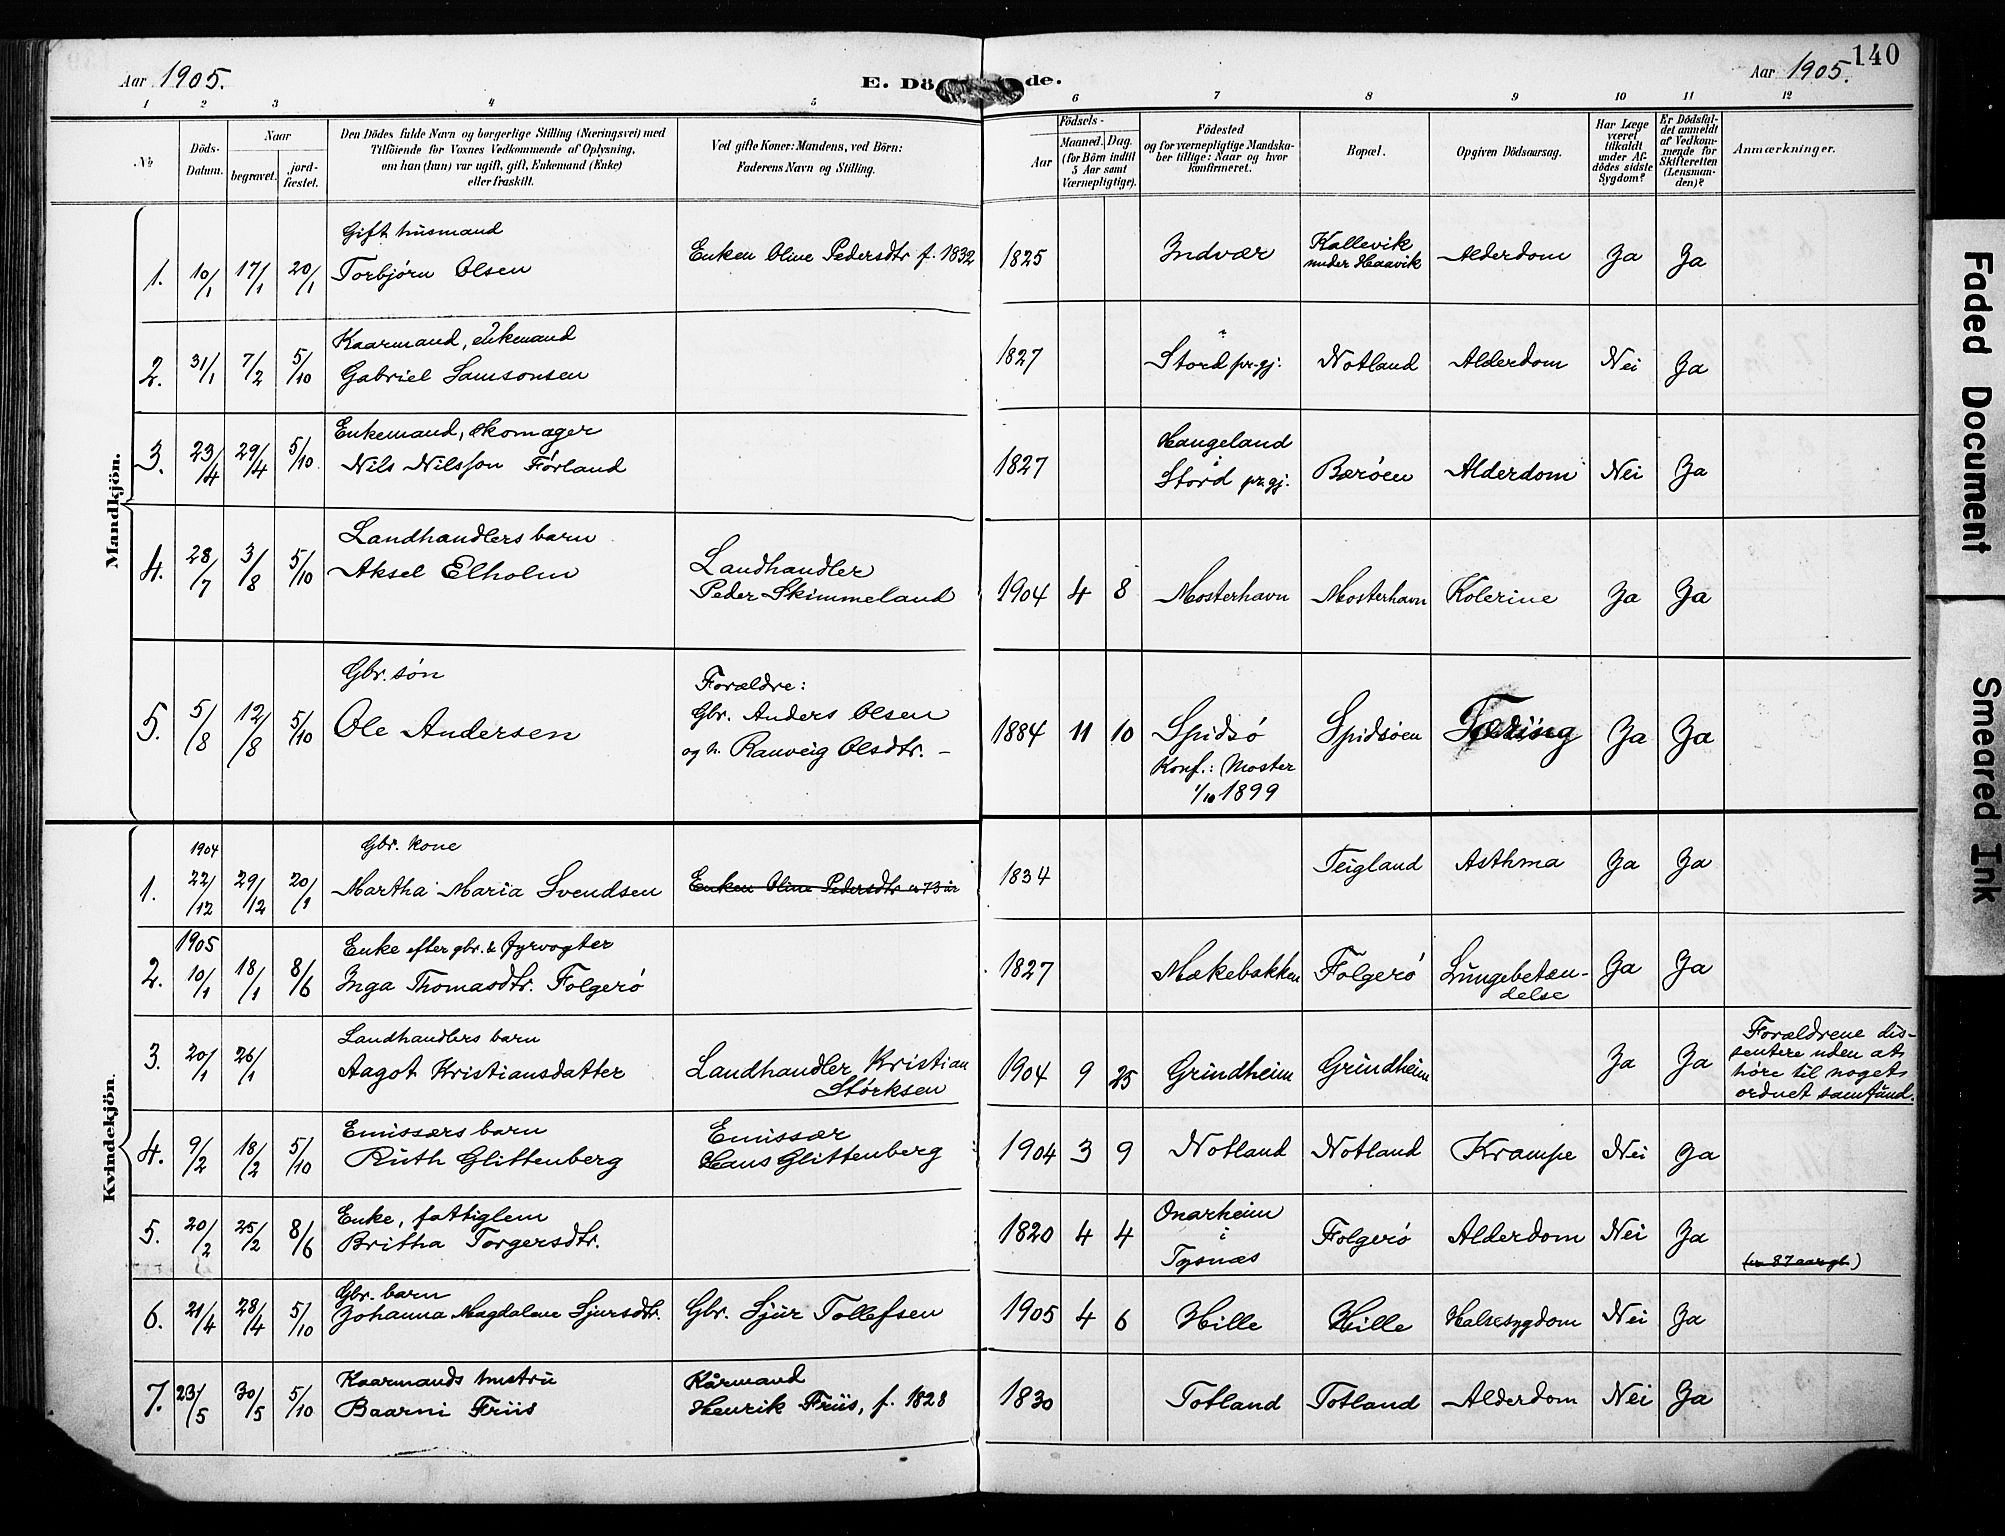 Aar 1905.
E. Dö de.
Aar 1905.
140
1 2 3 4 5 6 7 8 9 10 11 12
No
Döds-
Datum.
Naar
begravet.
jord-
fæstet.
Den Dödes fulde Navn og borgerlige Stilling (Næringsvei) med
Tilföiende for Voxnes Vedkommende af Oplysning,
om han (hun) var ugift, gift, Enkemand (Enke)
eller fraskilt.
Ved gifte Koner: Mandens, ved Börn:
Faderens Navn og Stilling.
Aar
Födsels-
Maaned. Dag.
(for Börn indtil
5 Aar samt
Værnepligtige).
Födested
og for værnepligtige Mandska-
ber tillige: Naar og hvor
konfirmeret.
Bopæl.
Opgiven Dödsaarsag.
Har Læge
været
tilkaldt
under Af-
dödes sidste
Sygdom?
Er Dödsfal-
det anmeldt
af Vedkom-
mende for
Skifteretten
(Lensman-
den)?
Anmærkninger.
Mandkjön.
1. 10/1 17/1 20/1 Gift husmand
Torbjørn Olsen
Enken Oline Pedersdtr f. 1832
1825 Indvær
Kallevik
under Haavik
Alderdom Ja Ja
2. 31/1 7/2 5/10 Kaarmand, enkemand
Gabriel Samsonsen
1827 Stord pr.gj. Notland Alderdom Nei Ja
3. 23/4 29/4 5/10 Enkemand, skomager
Nils Nilsson Førland
1827 Haugeland
i
Stord pr.gj. Børøen Alderdom Nei Ja
4. 28/7 3/8 5/10 Landhandlers barn
Aksel Elholm
Landhandler
Peder Skimmeland
1904 4 8 Mosterhavn Mosterhavn Kolerine Ja Ja
5. 5/8 12/8 5/10 Gbr. søn
Ole Andersen
Forældre:
Gbr. Anders Olsen
og h. Ranveig Olsdtr. -
1884 11 10 Spidsø
Konf.: Moster
1/10 1899
Spidsøen Tæring Ja Ja
Kvindekjön.
1. 1904
22/12 29/12 20/1 Gbr. kone
Martha Maria Svendsen
Enken Oline Pedersdtr 73 år
1834 Teigland Asthma Ja Ja
2. 1905
10/1 18/1 8/6 Enke efter gbr. & fyrvogter
Inga Thomasdtr. Folgerø
1827 Mækebakken Folgerø Lungebetæn-
delse Ja Ja
3. 20/1 26/1 Landhandlers barn
Aagot Kristiansdatter
Landhandler Kristian
Størksen
1904 9 25 Grindheim Grindheim Ja Ja
Forældrene dis-
sentere uden at
høre til noget
ordnet samfund.
4. 9/2 18/2 5/10 Emissærs barn
Ruth Glittenberg
Emissær
Hans Glittenberg
1904 3 9 Notland Notland Krampe Nei Ja
5. 20/2 25/2 8/6 Enke, fattiglem
Britha Torgersdtr.
1820 4 4 Onarheim
i
Tysnæs Folgerø Alderdom Nei Ja
(er 87 aar gl.)
6. 21/4 28/4 5/10 Gbr. barn
Johanna Magdalene Sjursdtr.
Gbr. Sjur Tollefsen
1905 4 6 Hille Hille Halssygdom Nei Ja
7. 23/5 30/5 5/10 Kaarmands hustru
Baarni Friis
Kårmand
Henrik Friis, f. 1828
1830 Totland Totland Alderdom Nei Ja
Faded Document
Smeared Ink